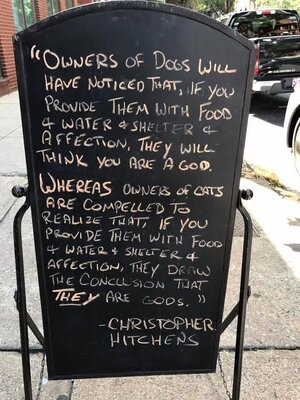 "OWNERS OF DOGS WILL
HAVE NOTICED THAT, IF YOU
PROVIDE THEM WITH FOOD
& WATER & SHELTER &
AFFECTION, THEY WILL
THINK YOU ARE A GOD.
WHEREAS OWNERS OF CATS
ARE COMPELLED TO
REALIZE THAT, IF YOU
PROVIDE THEM WITH FOOD
& WATER & SHELTER &
AFFECTION, THEY DRAW
THE CONCLUSION THAT
THEY ARE GODS."
-CHRISTOPHER
HITCHENS